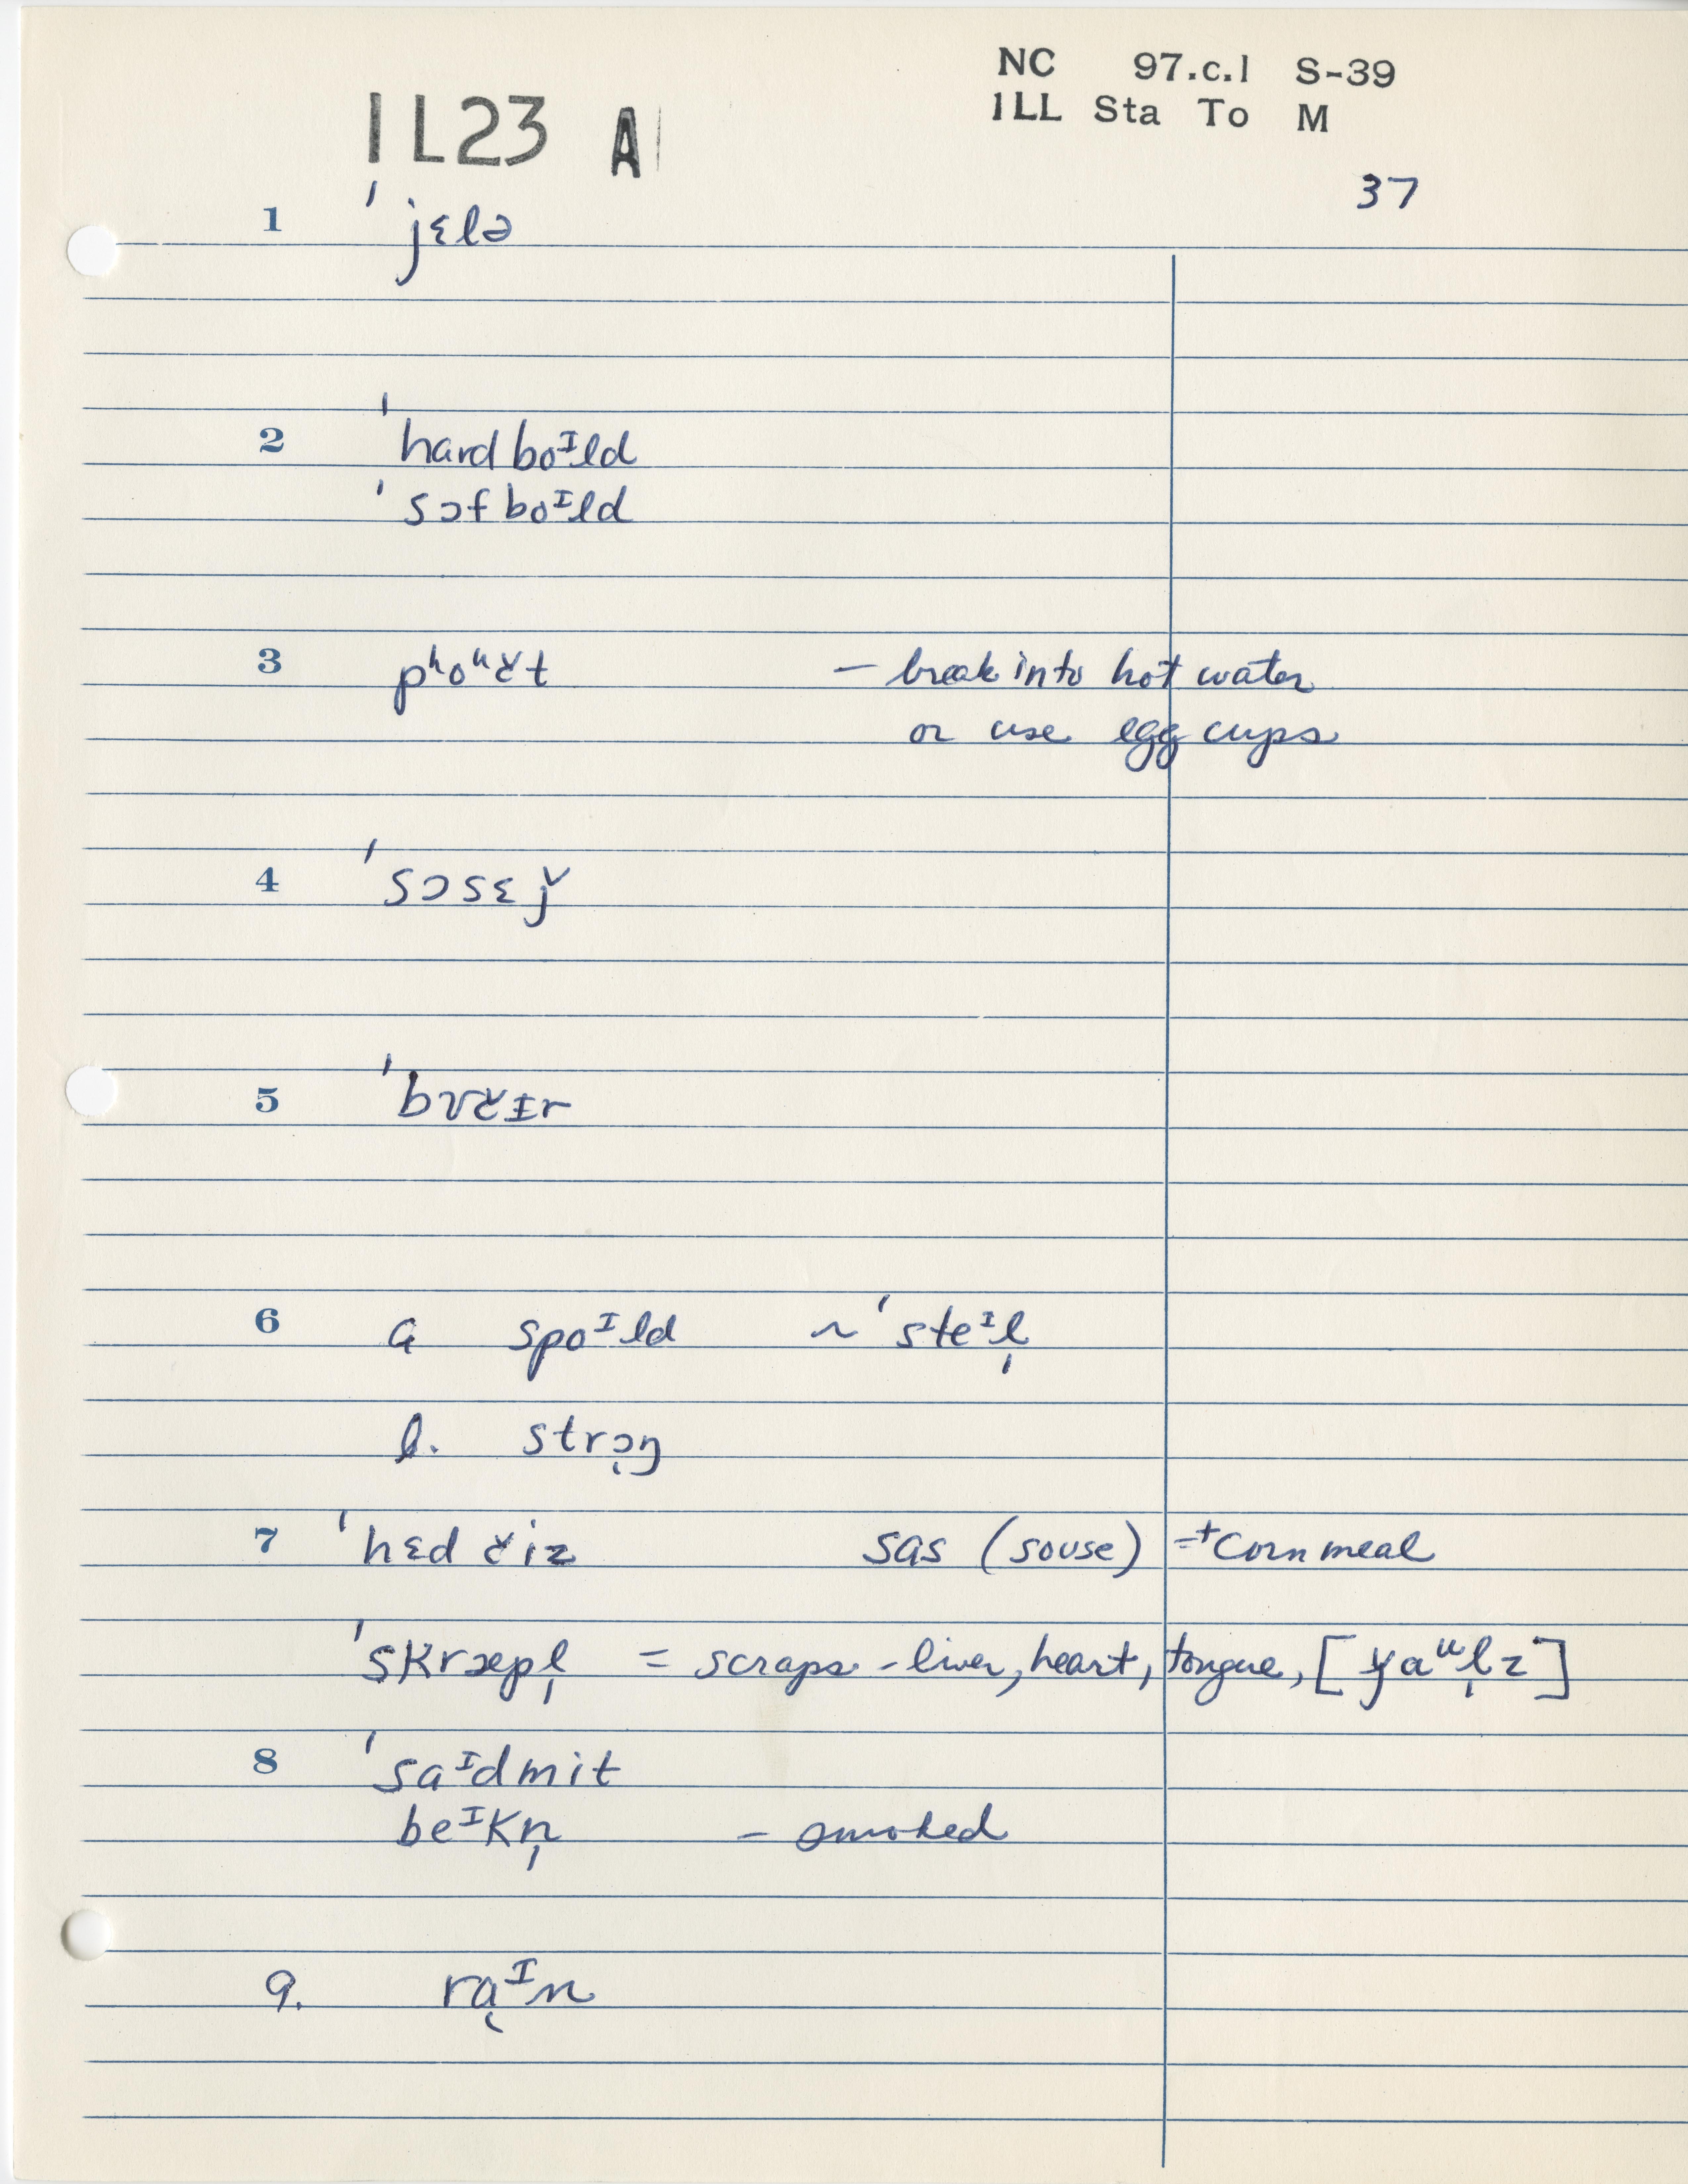 NC 97.c.1 S-39
1L23 A
ILL Sta To M
37
1 ˈjɛlə
2 ˈhardboᶦld
ˈsɔfboᶦld
3 pʰoᵘɾ̌t — break into hot water
or use egg cups
4 ˈsɔsɛǰ
5 ˈbʌɾ̌ɪr
6 a spoᶦld ~ ˈsteᶦl̩
b. strɔ̨ŋ
7 ˈhɛd ɾ̌iz sas (souse) =+ Corn meal
ˈskræpl̩ = scraps - liver, heart, tongue, [ɏaᵘl̩z]
8 ˈsaᶦdmit
beᶦkn̩ - smoked
9. rąᶦn